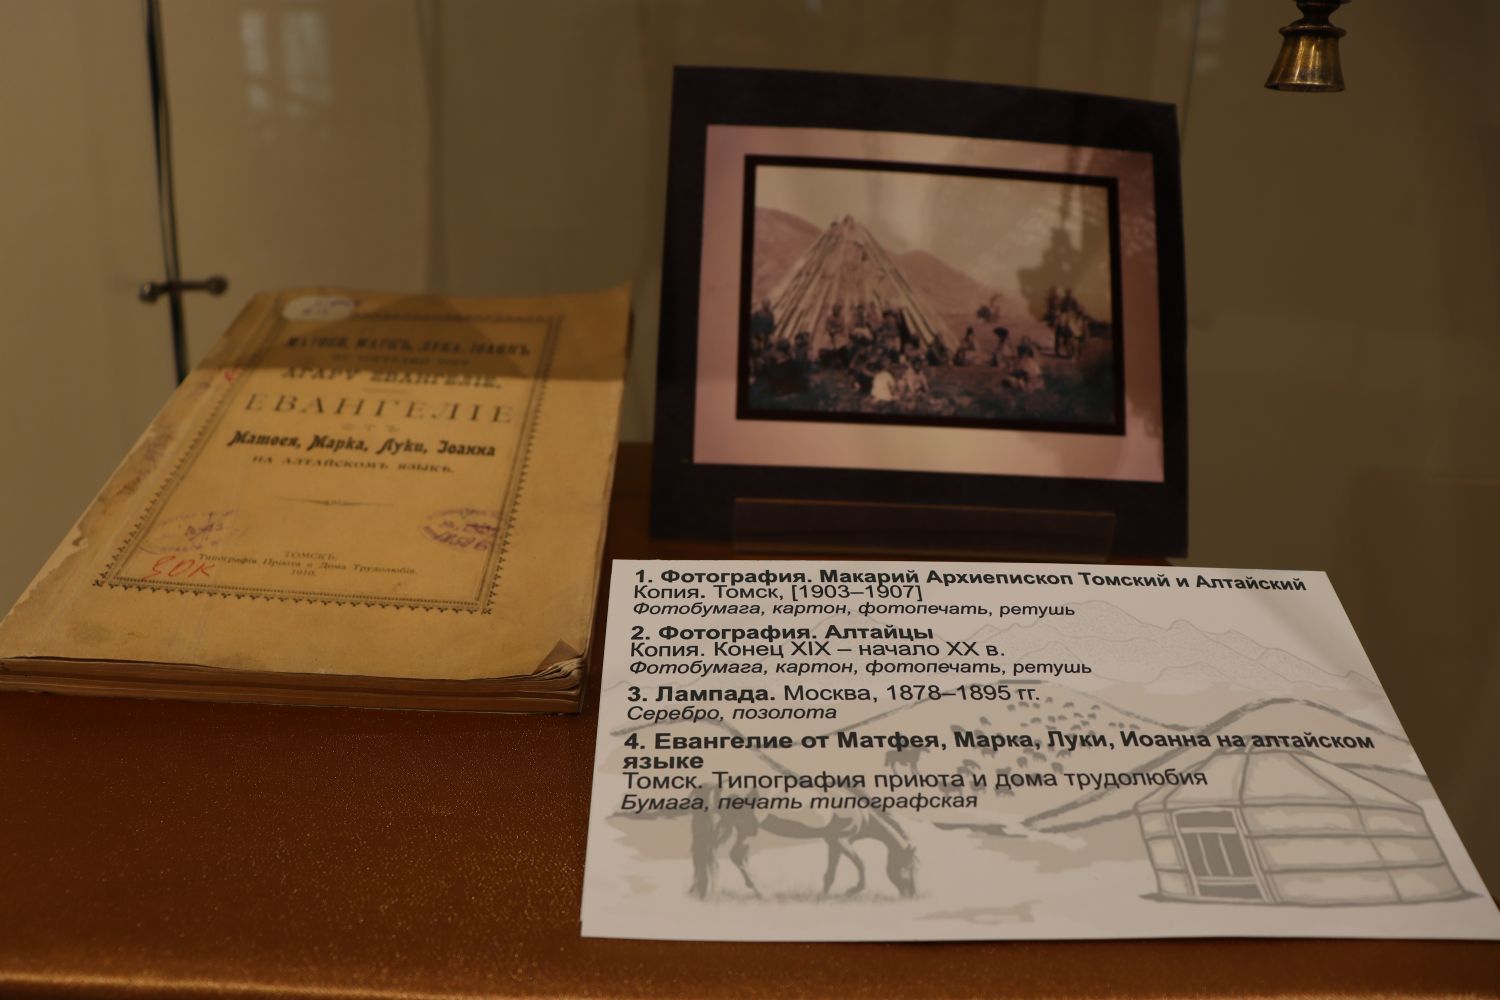 МАТѲЕЙ, МАРКЪ, ЛУКА, ІОАННЪ
АГАРУ ЕВАНГЕЛІЕ.
ЕВАНГЕЛІЕ
ОТЪ
Матѳея, Марка, Луки, Іоанна
НА АЛТАЙСКОМЪ ЯЗЫКѢ.
ТОМСКЪ.
Типографія Пріюта и Дома Трудолюбія.
1910.
1. Фотография. Макарий Архиепископ Томский и Алтайский
Копия. Томск, [1903–1907]
Фотобумага, картон, фотопечать, ретушь
2. Фотография. Алтайцы
Копия. Конец XIX – начало XX в.
Фотобумага, картон, фотопечать, ретушь
3. Лампада. Москва, 1878–1895 гг.
Серебро, позолота
4. Евангелие от Матфея, Марка, Луки, Иоанна на алтайском
языке
Томск. Типография приюта и дома трудолюбия
Бумага, печать типографская